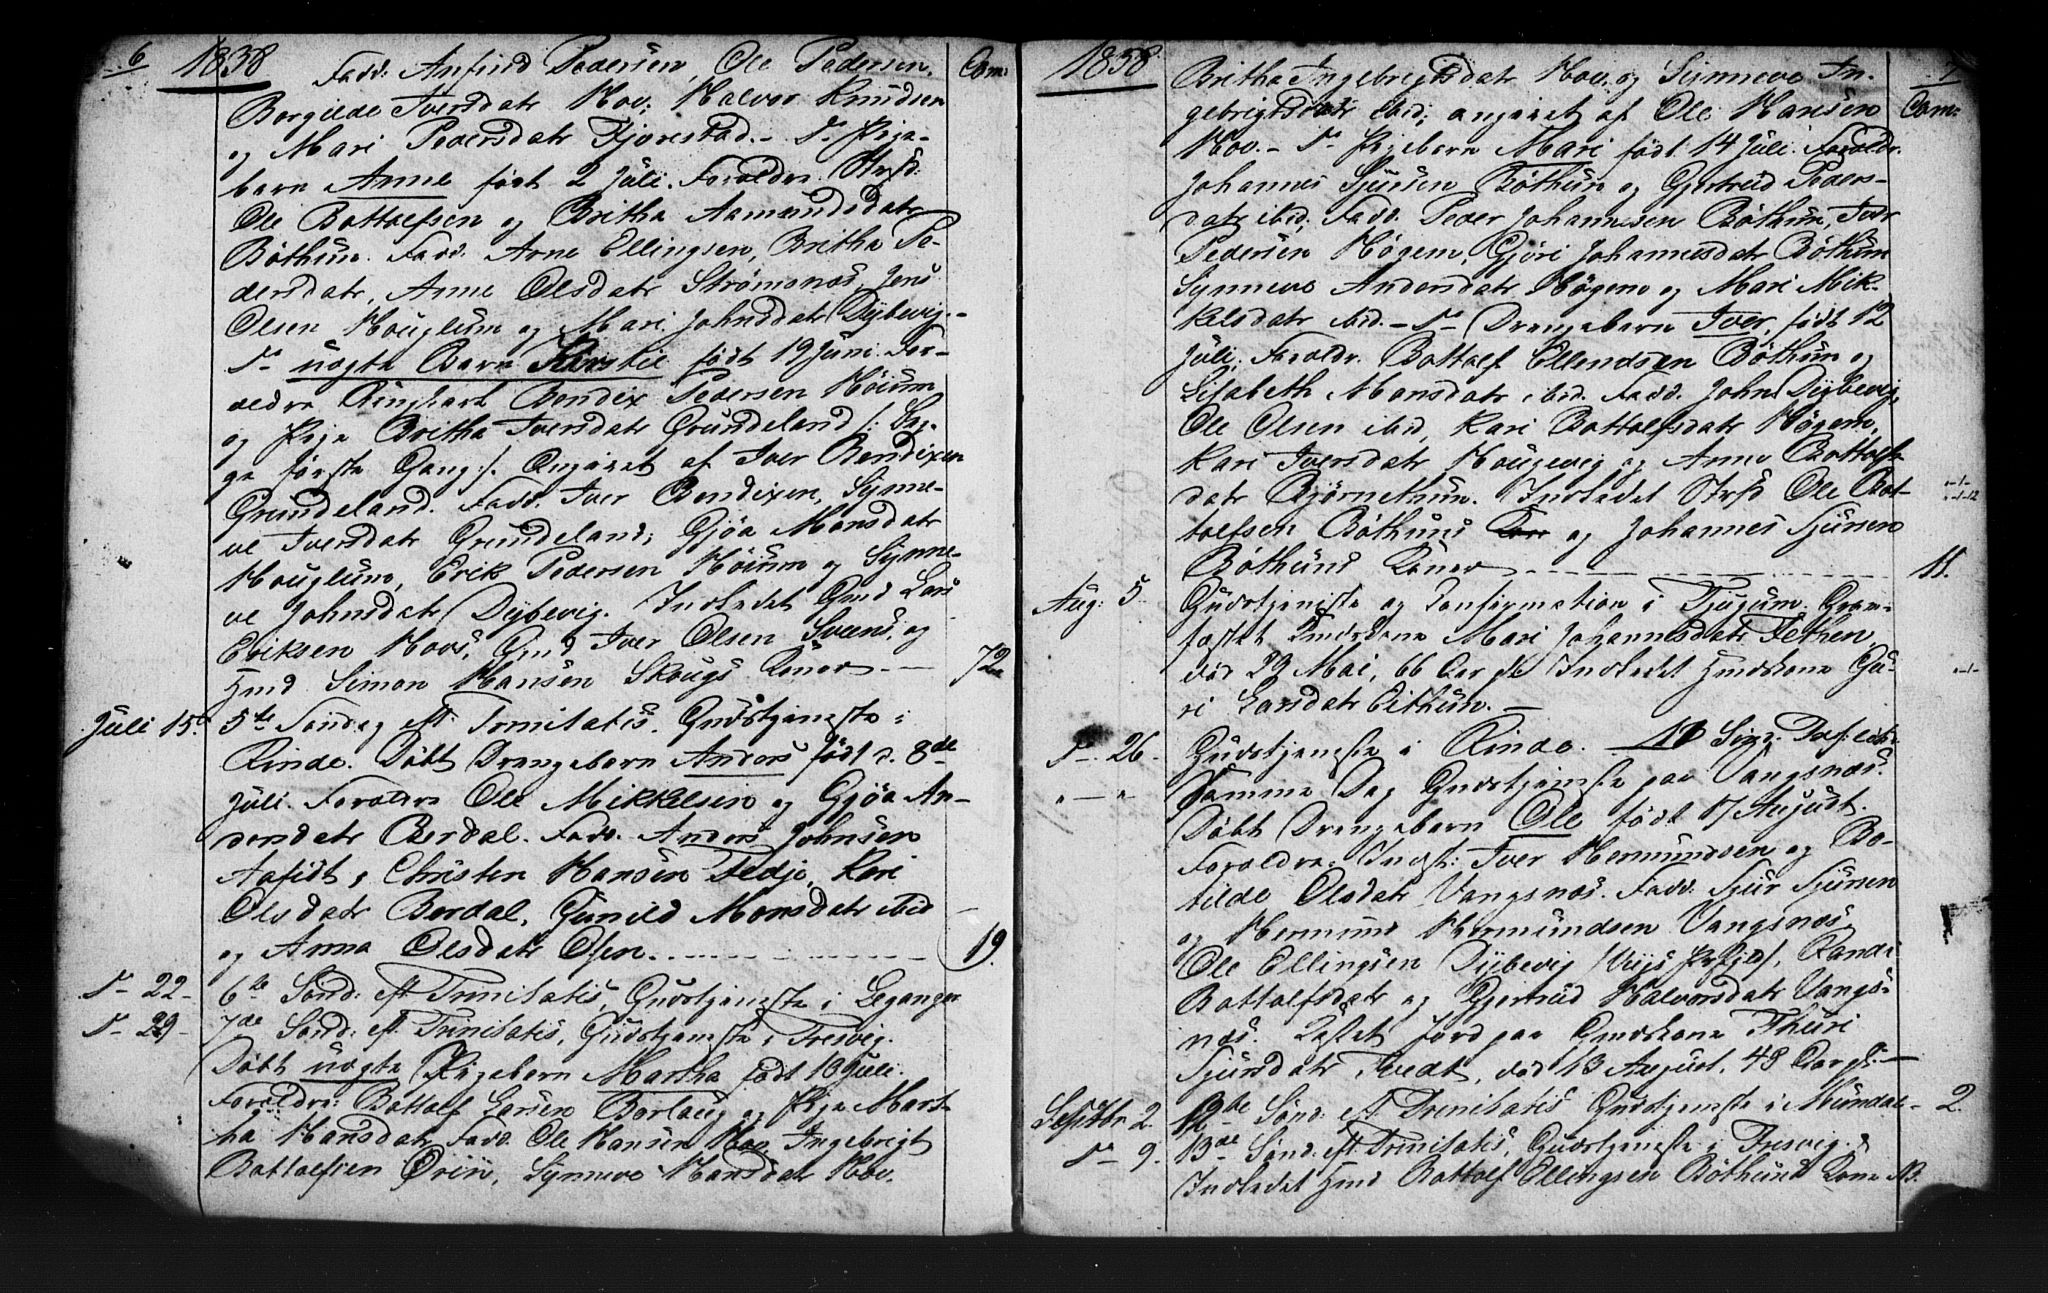 6 1838 Fadd: Anfind Pedersen, Ole Pedersen, Com:
Borgilde Iversdatr Hov, Halvor Knudsen
og Mari Pedersdatr Fjørestad. – Do Pige-
barn Anne født 2 Juli. Foreldre: Strsd:
Ole Bottolfsen og Britha Aamundsdatr
Bøthun. Fadd. Arne Ellingsen, Britha Pe-
dersdatr, Anne Olsdatr Strømsnæs, Jens
Olsen Houglum og Mari Johnsdatr Dybevig. –
Do uægte Barn født 19 Juni. For-
ældre Bendix Pedersen Høium
og Pige Britha Iversdatr Grundeland /: Beg-
ge første Gang :/. Angivet af Iver Bendixen
Grundeland. Fadd. Iver Bendixen, Synne-
ve Iversdatr Grundeland, Gjøa Monsdatr
Houglum, Erik Pedersen Høium og Synne-
ve Johnsdatr Dybevig. Indledet Gmd Lars
Eriksen Hovs, Gmd Iver Olsen Svæns, og
Hmd Simon Hansen Skougs Koner – 72
Juli 15. 5te Søndag eft. Trinitatis. Gudstjeneste i
Rinde. Døbt Drengebarn Anders født d. 8de
Juli. Forældre Ole Mikkelsen og Gjøa An-
dersdatr Berdal. Fadd. Anders Johnsen
Christen Hansen Fedje, Kari
Olsdatr Berdal, Gunild Monsdatr ibid
og Anna Olsdatr Osen. 19.
Do 22 – 6te Sønd: eft Trinitatis, Gudstjeneste i Leganger
Do 29 – 7de Sønd: eft. Trinitatis, Gudstjeneste i Fresvig.
Døbt uægte Pigebarn Martha født 10 Juli.
Forældre: Bottolf Larsen Borlaug og Pige Mart-
ha Hansdatr. Fadd. Ole Hansen Hov Ingebrigt
Bottolfsen Ørin, Synneve Hansdatr Hov,
1838. Britha Ingebrigtsdatr Hov, og Synneve In- 7
gebrigtsdatr ibid; angivet af Ole Hansen Com:
Hov. – Do Pigebarn Mari født 14 Juli. Foreldr.
Johannes Sjursen Bøthun og Gjertrud Peders-
datr ibid, Fadd. Peder Johannesen Bøthun, Iver
Pedersen Høgem, Gjøri Johannesdatr Bøthun
Synneve Andersdatr Høgem og Mari Mik-
kelsdatr ibid. – Do Drengebarn Iver, født 12
Juli. Foreldr. Bottolf Ellendsen Bøthun og
Lisabeth Monsdatr ibid. Fadd. John Dybevig,
Ole Olsen ibid, Kari Bottolfsdatr Høgem,
Kari Iversdatr Hougevig og Anne Bottolfs-
datr Bjørnethun. Indledet Strsd Ole Bot-
tolfsen Bøthuns og Johannes Sjursen
Bøthuns Koner 11.
Aug: 5 Gudstjeneste og Confirmation i Tjugum. Gram-
fæstet Gmdskone Mari Johannesdatr Fethen
død 29 Mai, 66 Aar gl. Indledet Hmdskone Gu-
ri Larsdatr Eithun. –
Do 26. Gudstjeneste i Rinde. –
" – " Samme Dag Gudstjeneste paa Vangsnæs.
Døbt Drengebarn Ole født 17 August.
Forældre: Iver Hermundsen og Bo-
tilde Olsdatr Vangsnæs. Fadd. Sjur Sjursen
og Hermund Hermundsen Vangsnæs
Ole Ellingsen Dybevig Randi
Bottolfsdatr og Gjertrud Halvorsdatr Vangs-
næs. Kastet Jord paa Gmdskone Thuri
Sjursdatr Tvedt, død 13 August, 48 Aar gl. –
Septbr 2. 12te Sønd: eft Trinitatis Gudstjeneste i Mundal – 2.
Do 9. 13de Sønd: eft. Trinitatis, Gudstjeneste i Fresvig.
Indledet Hmd Bottolf Ellingsen Bøthuns Kone